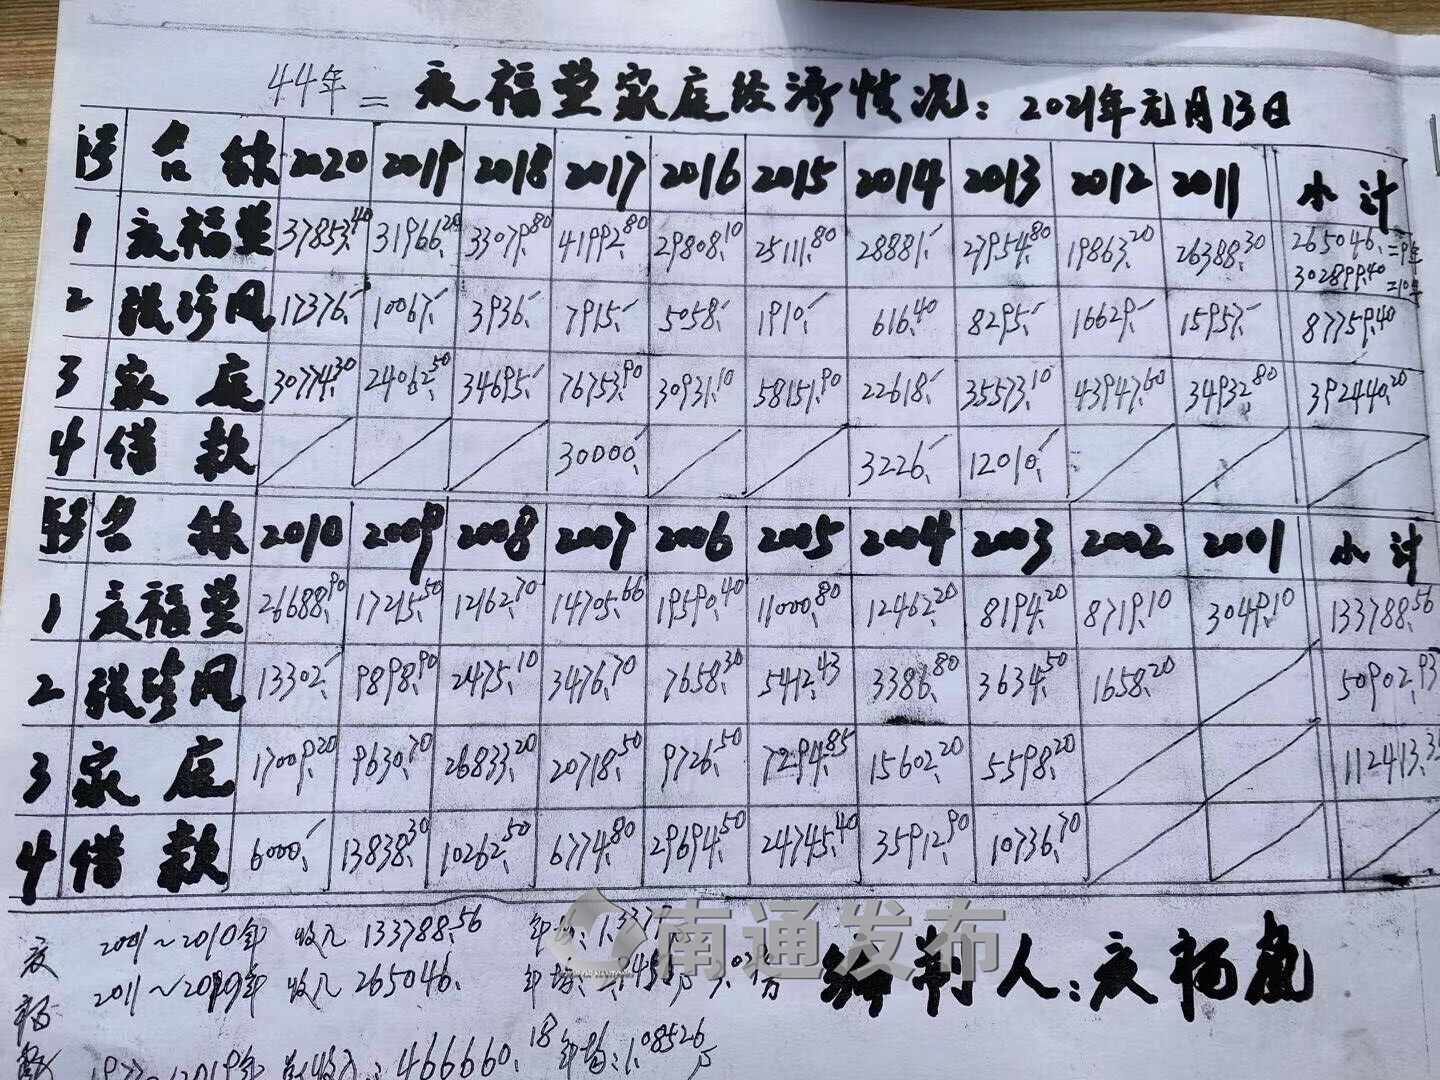 44年 = 袁福堂家庭经济情况: 2021年元月13日
号 名称 2020 2019 2018 2017 2016 2015 2014 2013 2012 2011 小计
1 袁福堂 37853.40 31966.20 33079.80 41992.80 29808.10 25111.80 28881.- 27954.80 19863.20 26388.30 265046.=9年
302899.40=10年
2 张珍凤 17376.- 10067.- 3936.- 7915.- 5058.- 1910.- 616.40 8295.- 16629.- 15957.- 87759.40
3 家庭 30774.30 24062.50 34695.- 76753.90 30931.10 58151.90 22618.- 35573.10 43947.60 34932.80 392440.20
4 借款 30000.- 3226.- 12010.-
名称 2010 2009 2008 2007 2006 2005 2004 2003 2002 2001 小计
1 袁福堂 26688.90 17215.50 12162.70 14705.66 19590.40 11000.80 12462.20 8194.20 8719.10 3049.10 133788.56
2 张珍凤 13302.- 9898.90 2475.10 3476.70 7658.30 5412.43 3386.80 3634.50 1658.20 50902.93
3 家庭 17009.20 9630.70 26833.20 20718.50 9726.50 7294.85 15602.20 5598.20 112413.35
4 借款 6000.- 13838.30 10262.50 6774.80 29694.50 24745.40 35912.90 10736.70
2001~2010年 收入 133788.56 年均:1.337
2011~2019年 收入 265046. 年均:
~2019年 总收入:466660.18 年均:1.08526万
编制人:袁福堂
南通发布